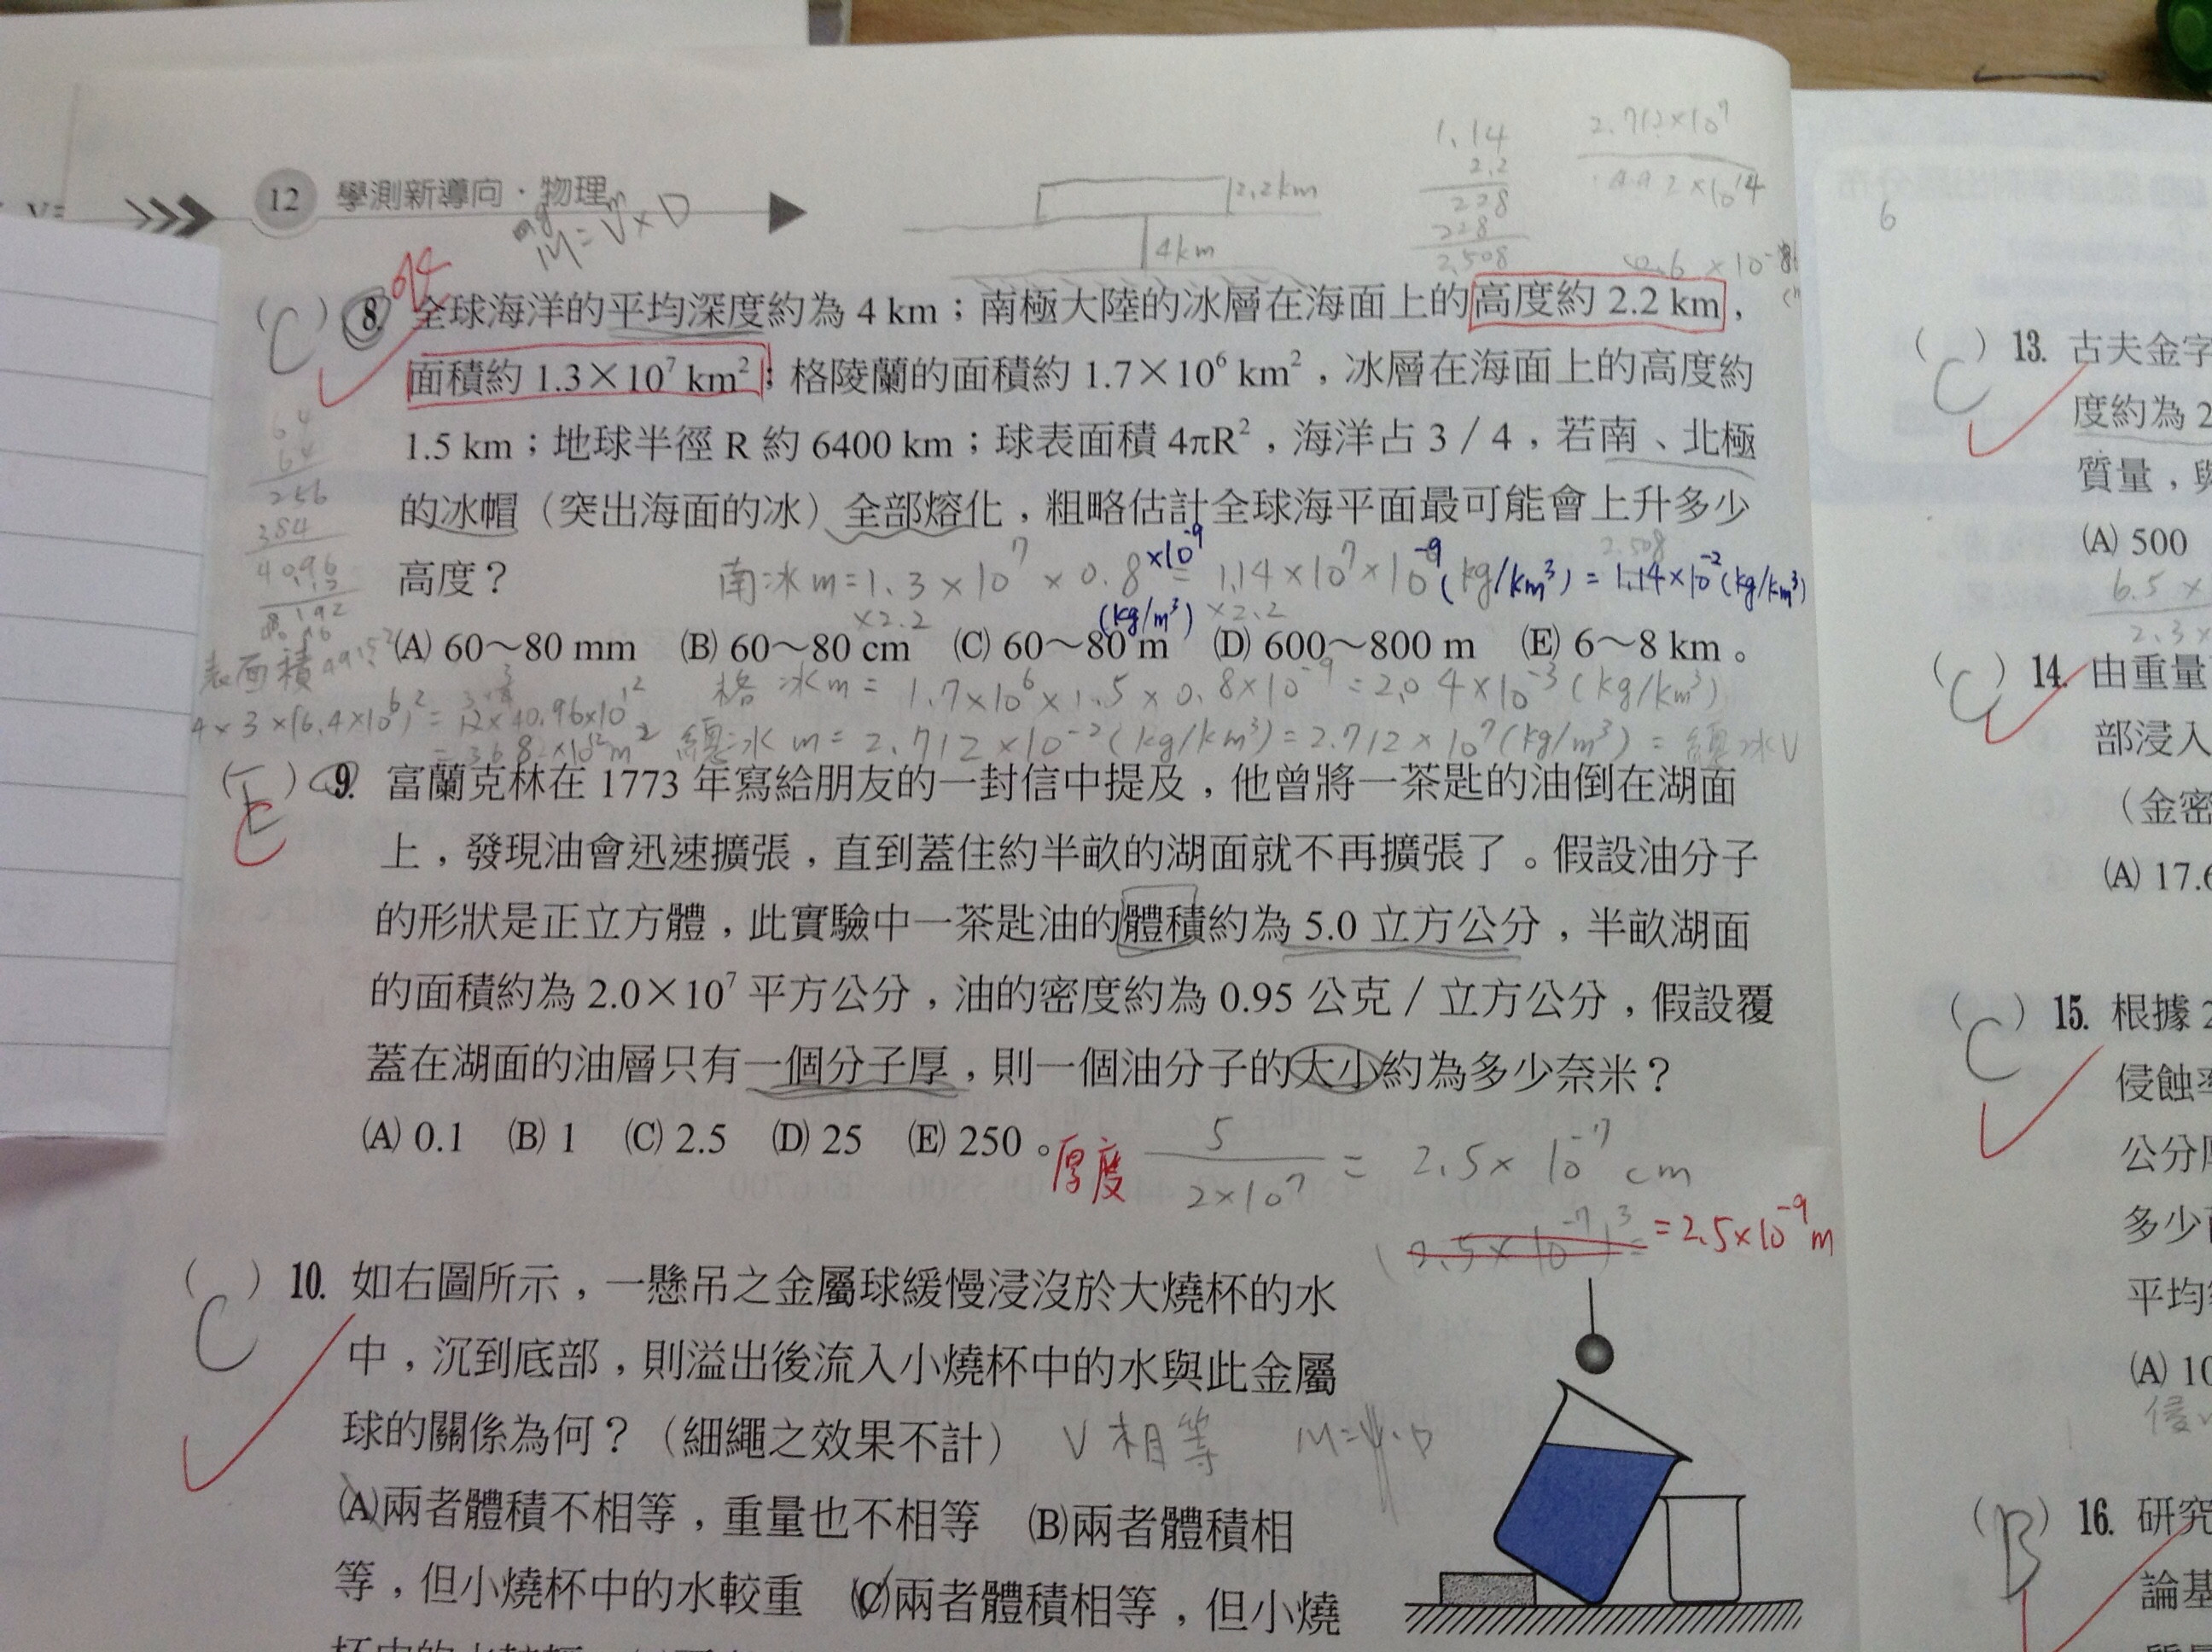 12 學測新導向．物理
M=V×D
2.2km
4km
1.14
2.2
228
228
2.508
2.712×10⁷
(C) 8. 全球海洋的平均深度約為 4 km；南極大陸的冰層在海面上的高度約 2.2 km，
面積約 1.3×10⁷ km²；格陵蘭的面積約 1.7×10⁶ km²，冰層在海面上的高度約
1.5 km；地球半徑 R 約 6400 km；球表面積 4πR²，海洋占 3／4，若南、北極
的冰帽（突出海面的冰）全部熔化，粗略估計全球海平面最可能會上升多少
高度？
64
64
256
384
4096
南冰m=1.3×10⁷×0.8×10⁻⁹=1.14×10⁷×10⁻⁹(kg/km³)=1.14×10⁻²(kg/km³)
×2.2 (kg/m³) ×2.2
2.508
(A) 60～80 mm (B) 60～80 cm (C) 60～80 m (D) 600～800 m (E) 6～8 km。
表面積
格冰m=1.7×10⁶×1.5×0.8×10⁻⁹=2.04×10⁻³(kg/km³)
4×3×(6.4×10⁶)²=12×40.96×10¹²
總冰m=2.712×10⁻²(kg/km³)=2.712×10⁷(kg/m³)=總冰V
(E) 9. 富蘭克林在 1773 年寫給朋友的一封信中提及，他曾將一茶匙的油倒在湖面
C
上，發現油會迅速擴張，直到蓋住約半畝的湖面就不再擴張了。假設油分子
的形狀是正立方體，此實驗中一茶匙油的體積約為 5.0 立方公分，半畝湖面
的面積約為 2.0×10⁷ 平方公分，油的密度約為 0.95 公克／立方公分，假設覆
蓋在湖面的油層只有一個分子厚，則一個油分子的大小約為多少奈米？
(A) 0.1 (B) 1 (C) 2.5 (D) 25 (E) 250。
厚度 5/2×10⁷ = 2.5×10⁻⁷ cm
(2.5×10⁻⁷)³= =2.5×10⁻⁹m
(C) 10. 如右圖所示，一懸吊之金屬球緩慢浸沒於大燒杯的水
中，沉到底部，則溢出後流入小燒杯中的水與此金屬
球的關係為何？（細繩之效果不計） V相等 M=V·D
(A)兩者體積不相等，重量也不相等 (B)兩者體積相
等，但小燒杯中的水較重 (C)兩者體積相等，但小燒
6
(C) 13. 古夫金字
度約為 2
質量，與
(A) 500
6.5×
(C) 14. 由重量
部浸入
（金密
(A) 17.6
(C) 15. 根據 2
侵蝕率
公分厚
多少
平均
(A) 10
(B) 16. 研究
論基